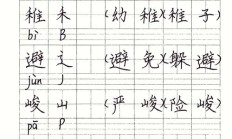 稚 禾 (幼 稚)(稚 子)
bì B
避 辶 (避 免)(躲 避)
jùn J
峻 山 (严 峻)(险 峻)
pā P